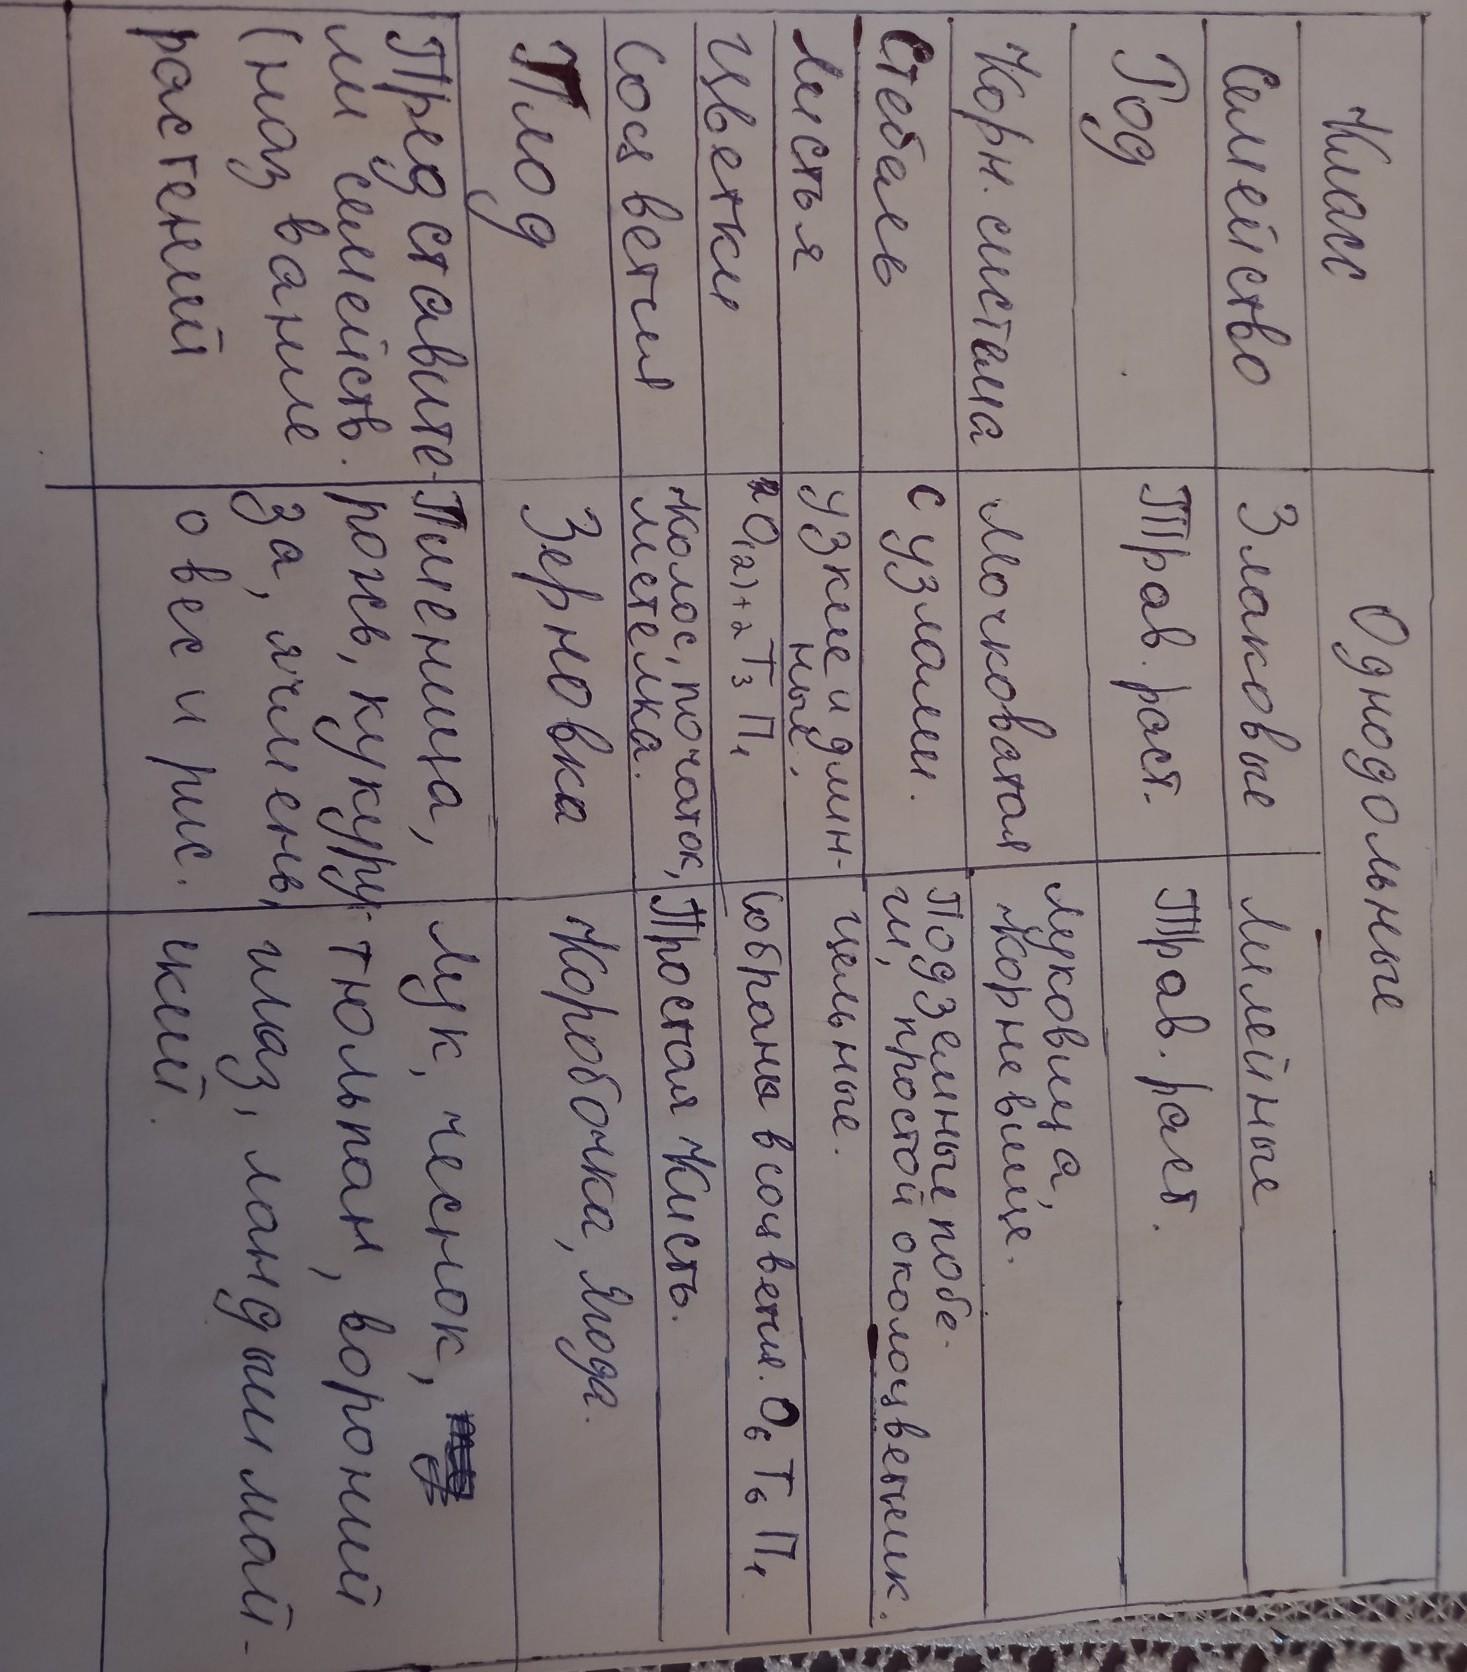 Класс
Однодольные
Семейство
Злаковые
Лилейные
Род
Трав. раст.
Трав. раст.
Корн. система
Мочковатая
Луковица,
Корневище.
Стебель
с узлами.
Подземные побе-
ги, простой околоцветник.
Листья
узкие и длин-
ные.
Цельные.
Цветки
О(2)+2 Т3 П1
Собраны в соцветия. О6 Т6 П1
Соцветия
Колос, початок,
метелка.
Простая Кисть.
Плод
Зерновка
Коробочка, Ягода.
Представите-
ли семейств.
(название
растений
Пшеница,
рожь, кукуру-
за, ячмень,
овес и рис.
Лук, чеснок,
тюльпан, вороний
глаз, ландыш май-
ский.